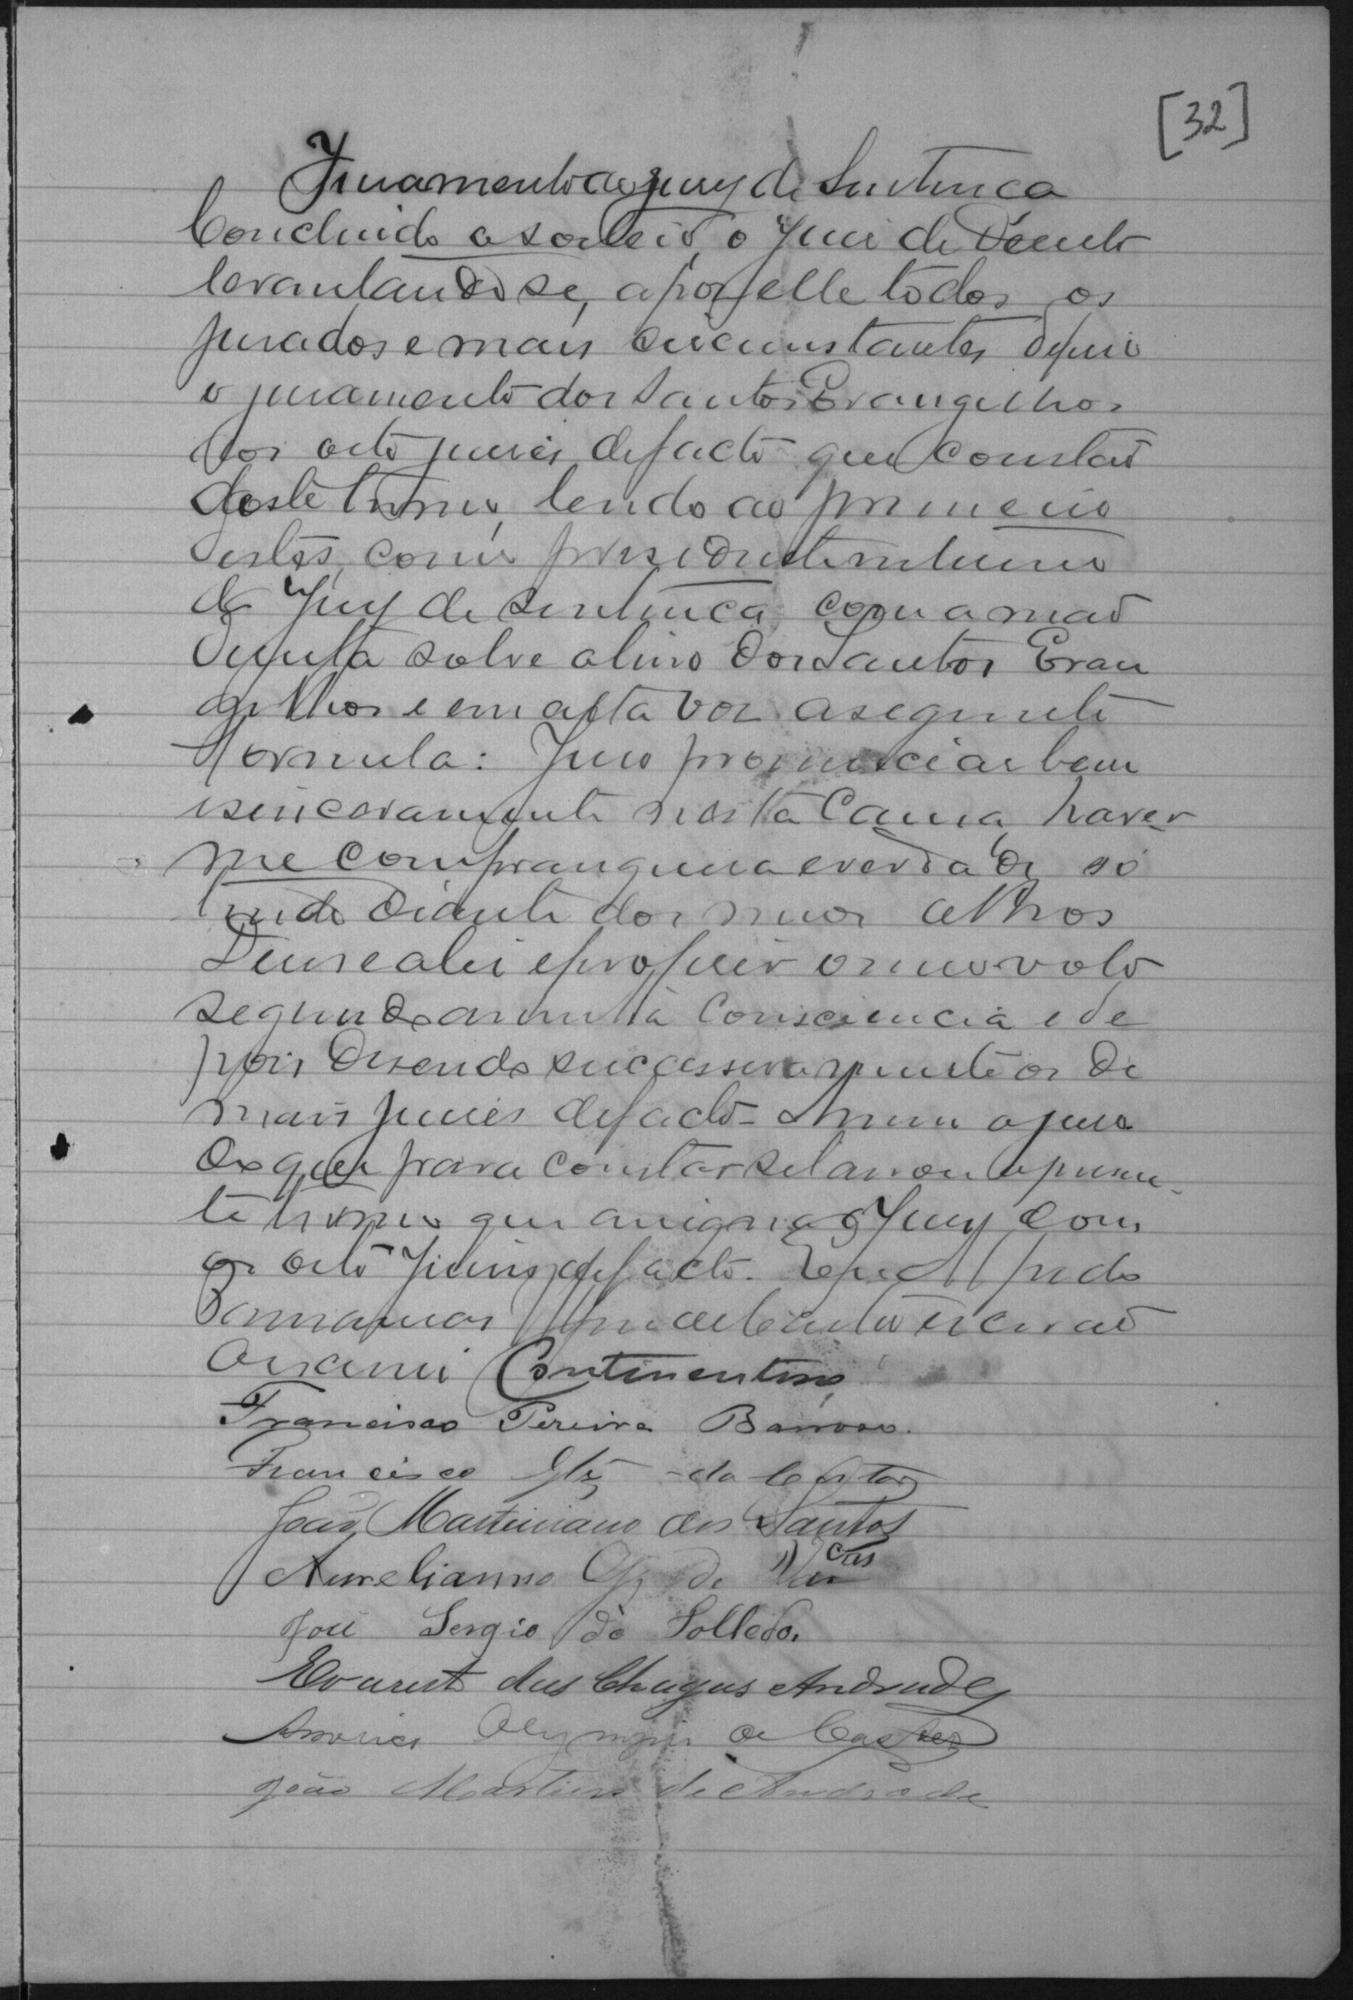 [32]
Juramento ao jury de Sentença
Concluido o sorteio, o Juis de Direito
levantando se, a por elle todos os
jurados e mais circumstantes deferio
o juramento dos Santos Evangelhos
aos oito juises de facto que constão
deste termo, lendo ao primeiro
destes, como presidente interino
do Jury de sentença, com a mão
direita sobre a livro dos Santos Evan
gelhos e em alta voz a seguinte
formula: Juro pronunciar bem
e sinceramente nesta Causa, haver
me com franquesa e verdade só
tendo diante dos meus olhos
Deus e a lei e proferir o meu voto
segundo a minha Consciencia e de
pois disendo successivamente os de
mais juises de facto - Assim o juro
Do que para constar se lavrou o presen
te termo que assigna o Juis com
os oito Juises de facto. Eu
escrivão
Continentino
Francisco Pereira Barroso.
Francisco da Costa
João Martiniano dos Santos
Aurelianno de
José Sergio de Tolledo.
Evarist das Chagas Andrade
Olympio de Castro
João Martins de Andrade